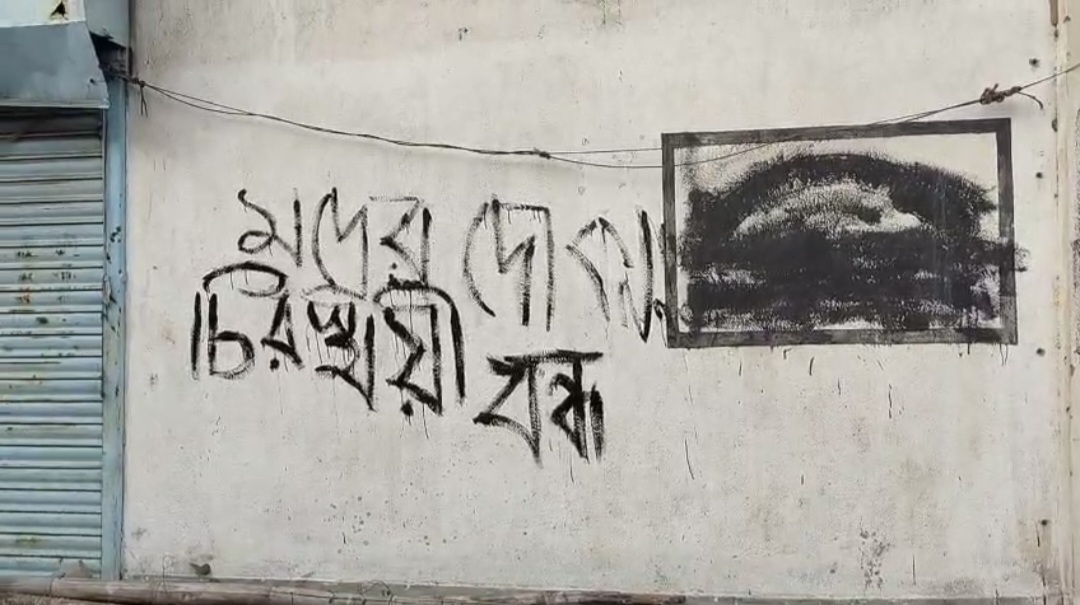 মদের দোকান
চিরস্থায়ী বন্ধ